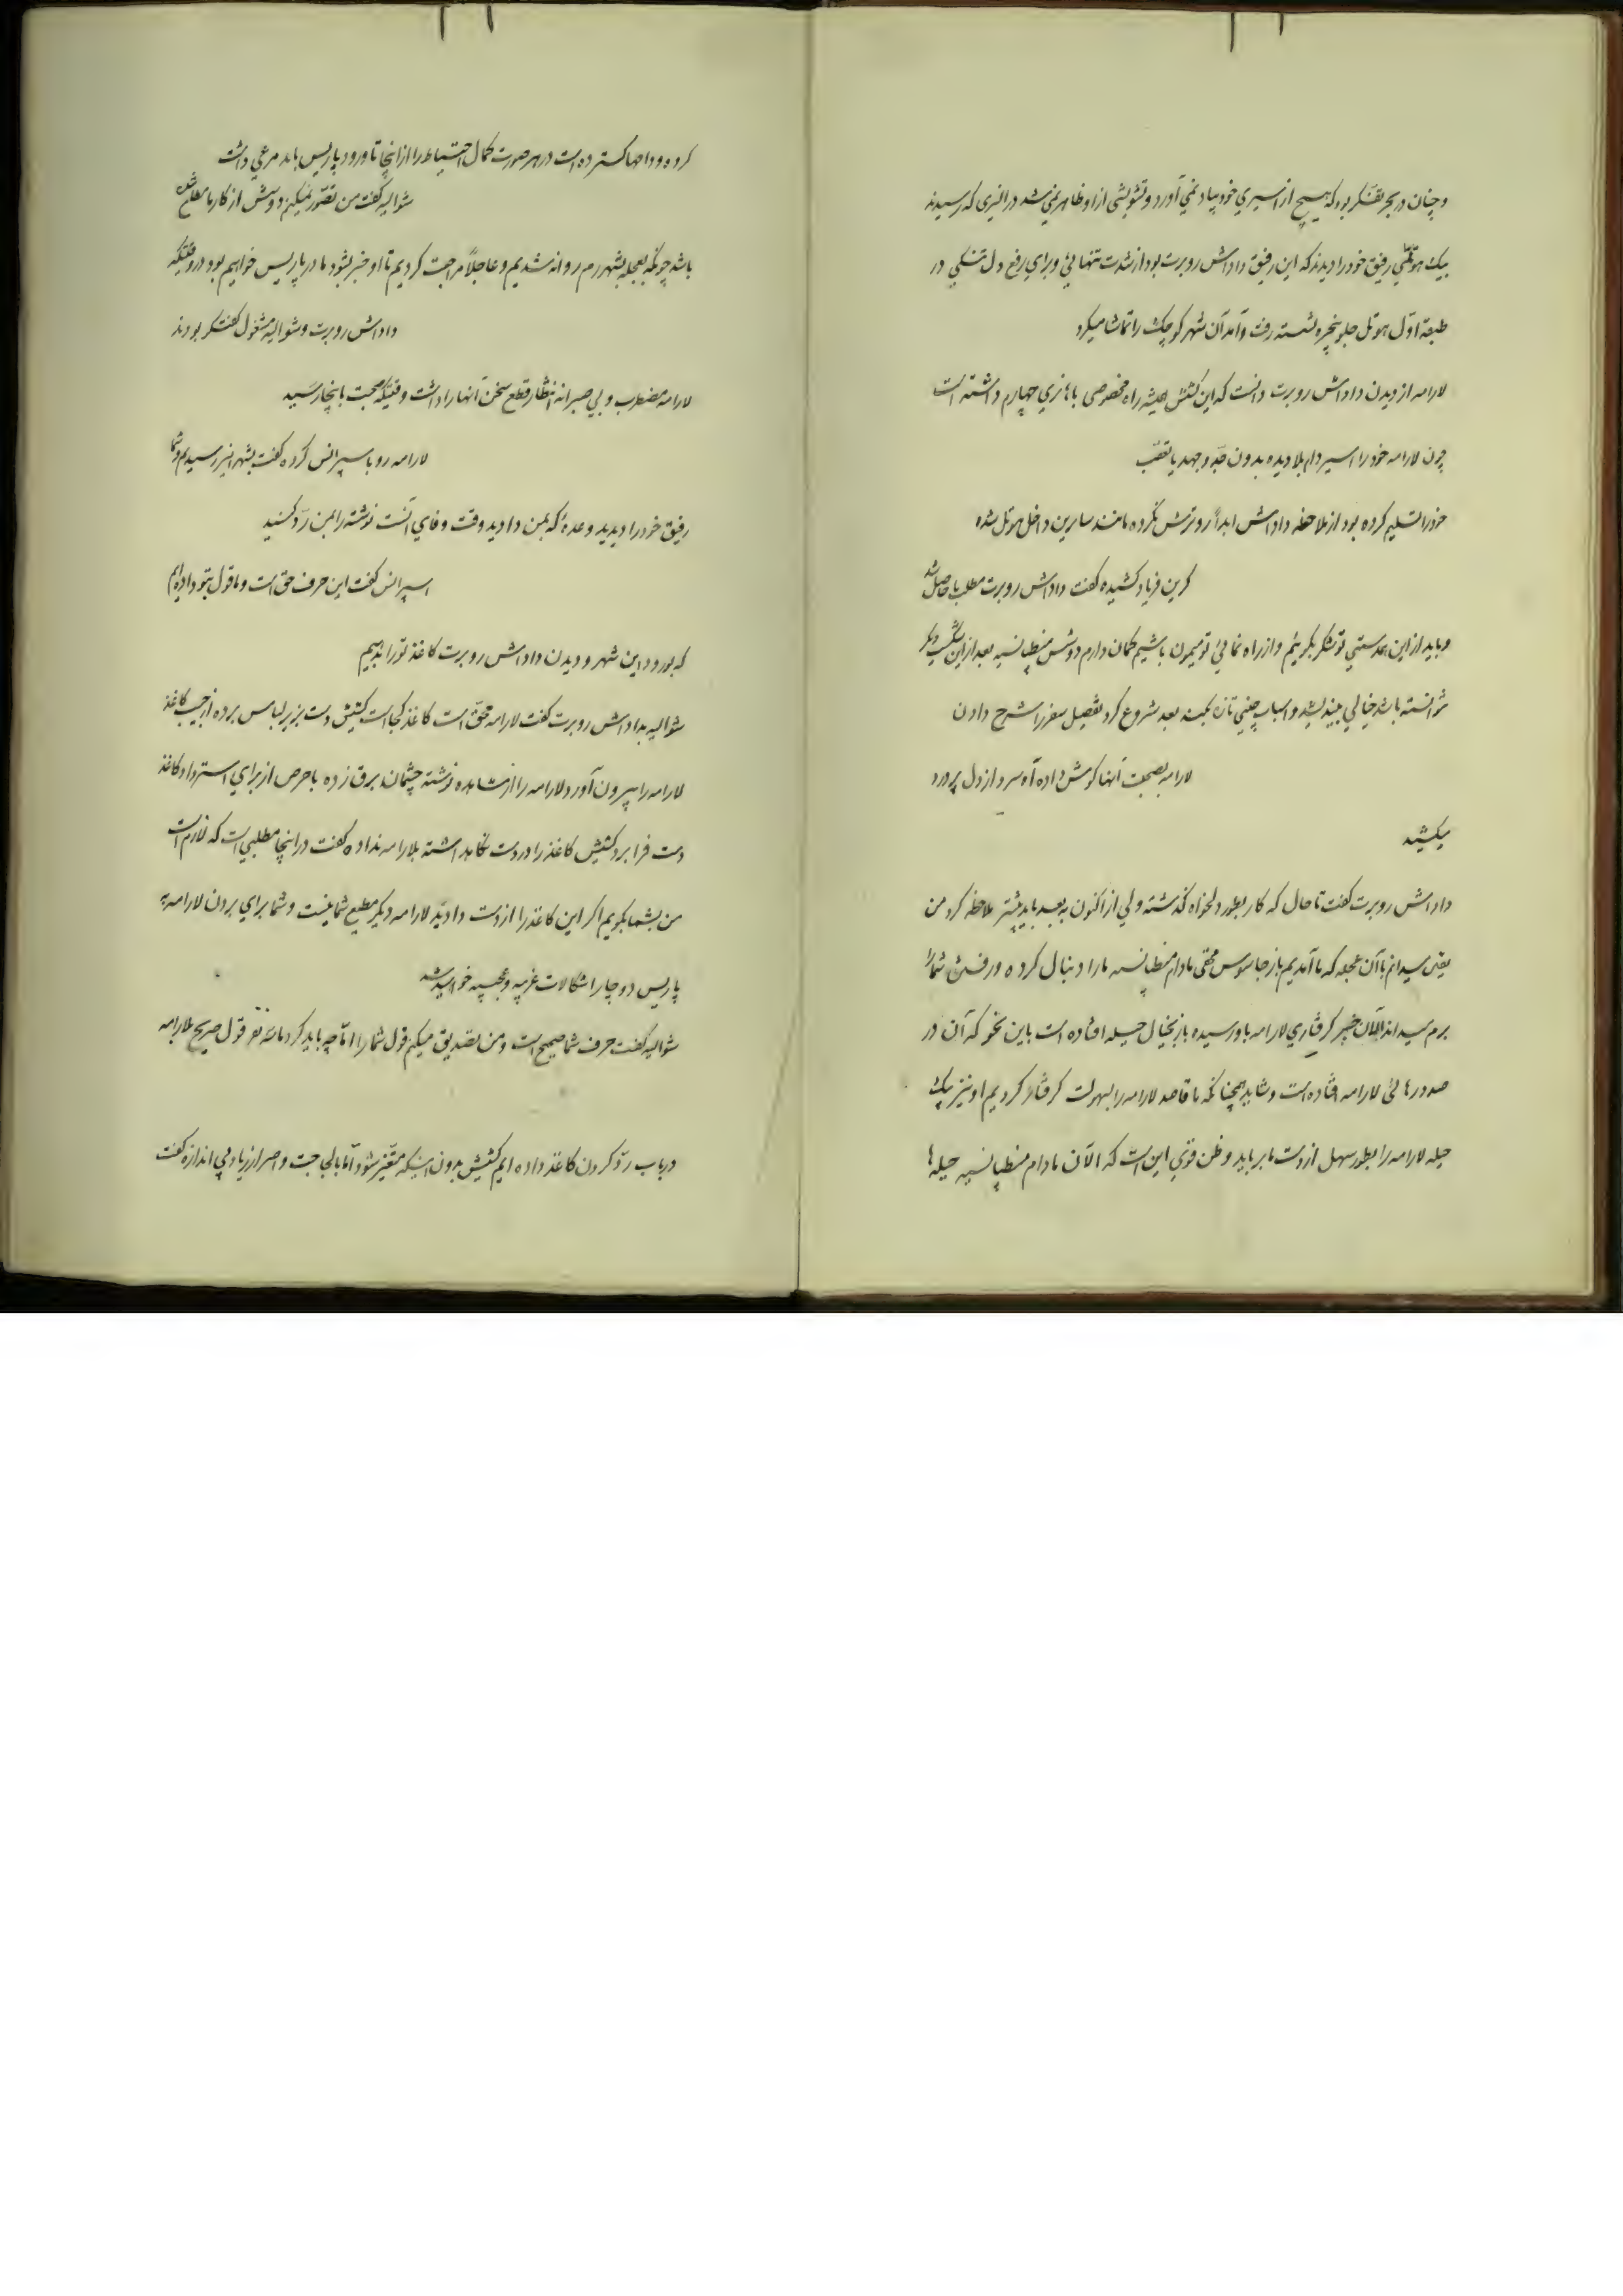 و چنان در بحر تفکر بود که هیچ از اسیری خود بیاد نمی آورد و تشویشی از او ظاهر نمی شد در انیری که رسیدند
بیک هوتلی رفیق خود را دیدند که این رفیق داداش روبرت بود از شدت تنهائی و برای رفع دل تنگی در
طبقه اول هوتل جلو پنجره نشسته رفت و آمد آن شهر کوچک را تماشا میکرد
لارامه از دیدن داداش روبرت دانست که این کشیش همیشه راه مخصوصی با هانری چهارم داشته است
چون لارامه خود را اسیر دام بلا دیده بدون جد و جهد یا تعب
خود را تسلیم کرده بود از ملاحظه داداش ابداً رو ترش نکرده مانند سایرین داخل هوتل شده
کرین فریاد کشیده گفت داداش روبرت مطلب ما حاصل شد
و باید از این همدستی تو تشکر بگوئیم و از راه نمائی تو ممنون باشیم گمان دارم دوشس منطپانسیه بعد از این شکست دیگر
نتوانسته باشد خیالی بیندیشد و اسباب چینی تازه بکند بعد شروع کرد تفصیل سفر را شرح دادن
لارامه بصحبت آنها گوش داده آه سرد از دل پر درد
میکشید
داداش روبرت گفت تا حال که کار بطور دلخواه گذشته ولی از اکنون به بعد باید بیشتر ملاحظه کرد من
یقین میدانم با آن عجله که ما آمدیم باز جاسوس مخفی مادام منطپانسیه ما را دنبال کرده و رفتن شما را
برم میداند الآن خبر گرفتاری لارامه باو رسیده باز بخیال حیله افتاده است باین نحو که آن در
صدد رهائی لارامه افتاده است و شاید همچنانکه ما قاصد لارامه را بسهولت گرفتار کردیم او نیز بیک
حیله لارامه را بطور سهل از دست ما برباید و ظن قوی این است که الآن مادام منطپانسیه حیله ها
کرده و دامها گسترده است در هر صورت کمال احتیاط را از اینجا تا ورود پاریس باید مرعی داشت
شوالیه گفت من تصور نمیکنم دوشس از کار ما مطلع شده
باشد چونکه بعجله بشهر رم روانه شدیم و عاجلاً مراجعت کردیم تا او خبر بشود ما در پاریس خواهیم بود در وقتیکه
داداش روبرت و شوالیه مشغول گفتگو بودند
لارامه مضطرب و بی صبرانه انتظار قطع سخن آنها را داشت وقتیکه صحبت باینجا رسید
لارامه رو باسپرانس کرده گفت بشهر انیر رسیدیم و شما
رفیق خود را دیدید وعدهٔ که بمن دادید وقت وفای آنست نوشته را بمن رد کنید
اسپرانس گفت این حرف حق است و ما قول بتو داده ایم
که بورود این شهر و دیدن داداش روبرت کاغذ تو را بدهیم
شوالیه بداداش روبرت گفت لارامه محق است کاغذ کجا است کشیش دست بزیر لباس برده از جیب کاغذ
لارامه را بیرون آورد و لارامه را از مشاهده نوشته چشمان برق زده با حرص از برای استرداد کاغذ
دست فرا برد کشیش کاغذ را در دست نگاهداشته بلارامه نداده گفت در اینجا مطلبی است که لازم است
من بشما بگویم اگر این کاغذ را از دست دادید لارامه دیگر مطیع شما نیست و شما برای بردن لارامه به
پاریس دوچار اشکالات غریبه و عجیبه خواهید شد
شوالیه گفت حرف شما صحیح است و من تصدیق میکنم قول شما را اما چه باید کرد ما سه نفر قول صریح بلارامه
در باب رد کردن کاغذ داده ایم کشیش بدون اینکه متغیر شود اما با لجاجت و اصرار زیاد بی اندازه گفت